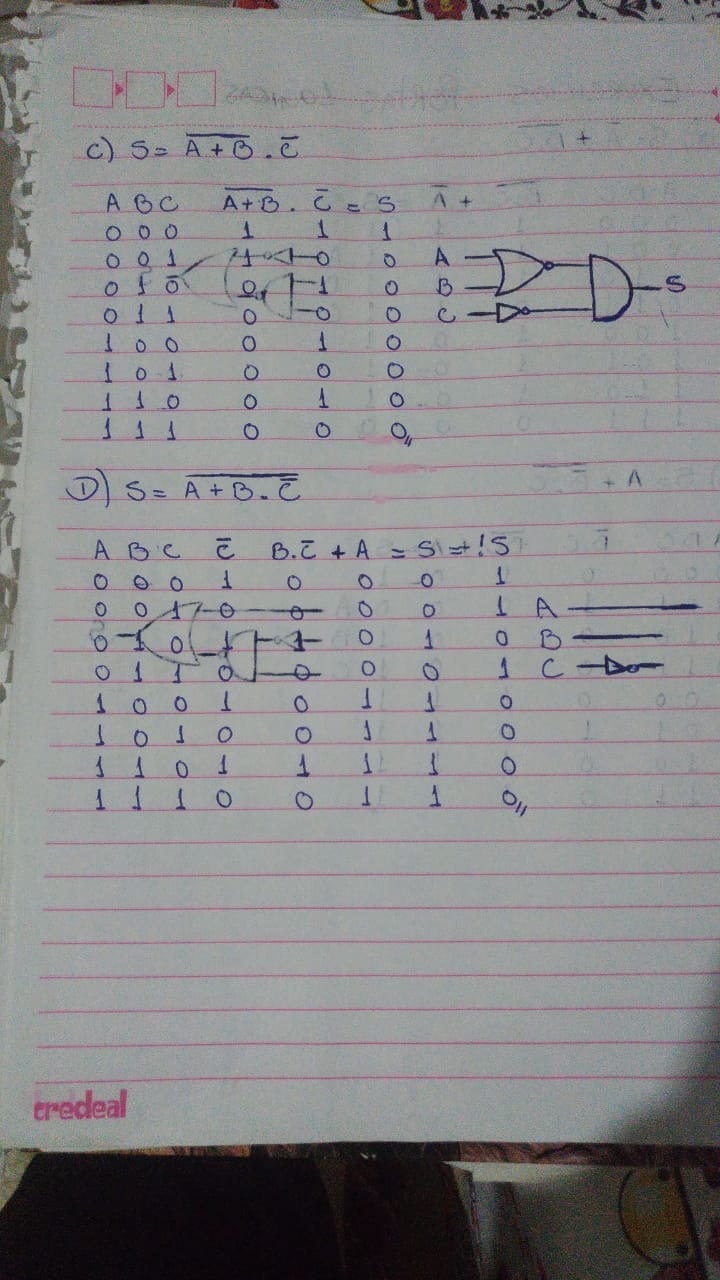 C) S = A̅+̅B̅ . C̅
A B C A̅+̅B̅ . C̅ = S A̅ +
0 0 0 1 1 1
0 0 1 1 0 0 A
0 1 0 0 1 0 B S
0 1 1 0 0 0 C
1 0 0 0 1 0
1 0 1 0 0 0
1 1 0 0 1 0
1 1 1 0 0 0,,
D) S = A̅+̅B̅.̅C̅̅
A B C C̅ B.C̅ + A = S = !S
0 0 0 1 0 0 0 1
0 0 1 0 0 0 0 1 A
0 1 0 1 1 0 1 0 B
0 1 1 0 0 0 0 1 C
1 0 0 1 0 1 1 0
1 0 1 0 0 1 1 0
1 1 0 1 1 1 1 0
1 1 1 0 0 1 1 0,,
credeal